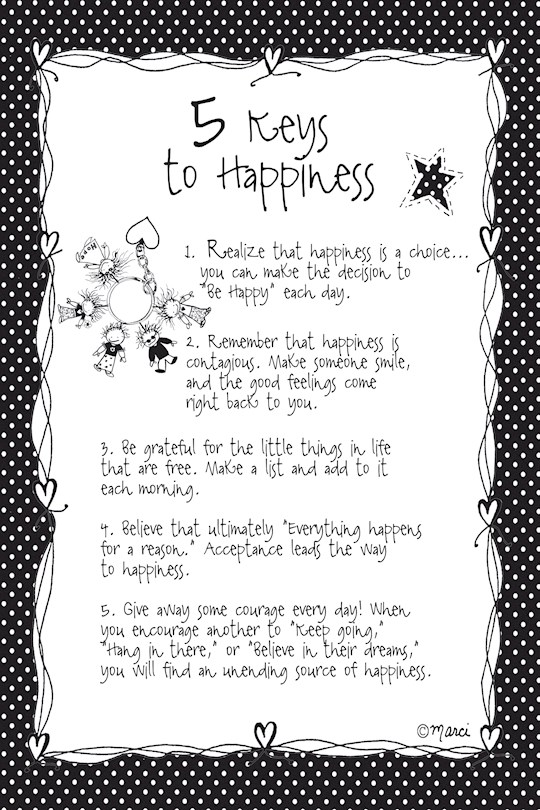 5 Keys
to Happiness
Hope
1. Realize that happiness is a choice...
you can make the decision to
"Be Happy" each day.
2. Remember that happiness is
contagious. Make someone smile,
and the good feelings come
right back to you.
3. Be grateful for the little things in life
that are free. Make a list and add to it
each morning.
4. Believe that ultimately "Everything happens
for a reason." Acceptance leads the way
to happiness.
5. Give away some courage every day! When
you encourage another to "Keep going,"
"Hang in there," or "Believe in their dreams,"
you will find an unending source of happiness.
©Marci